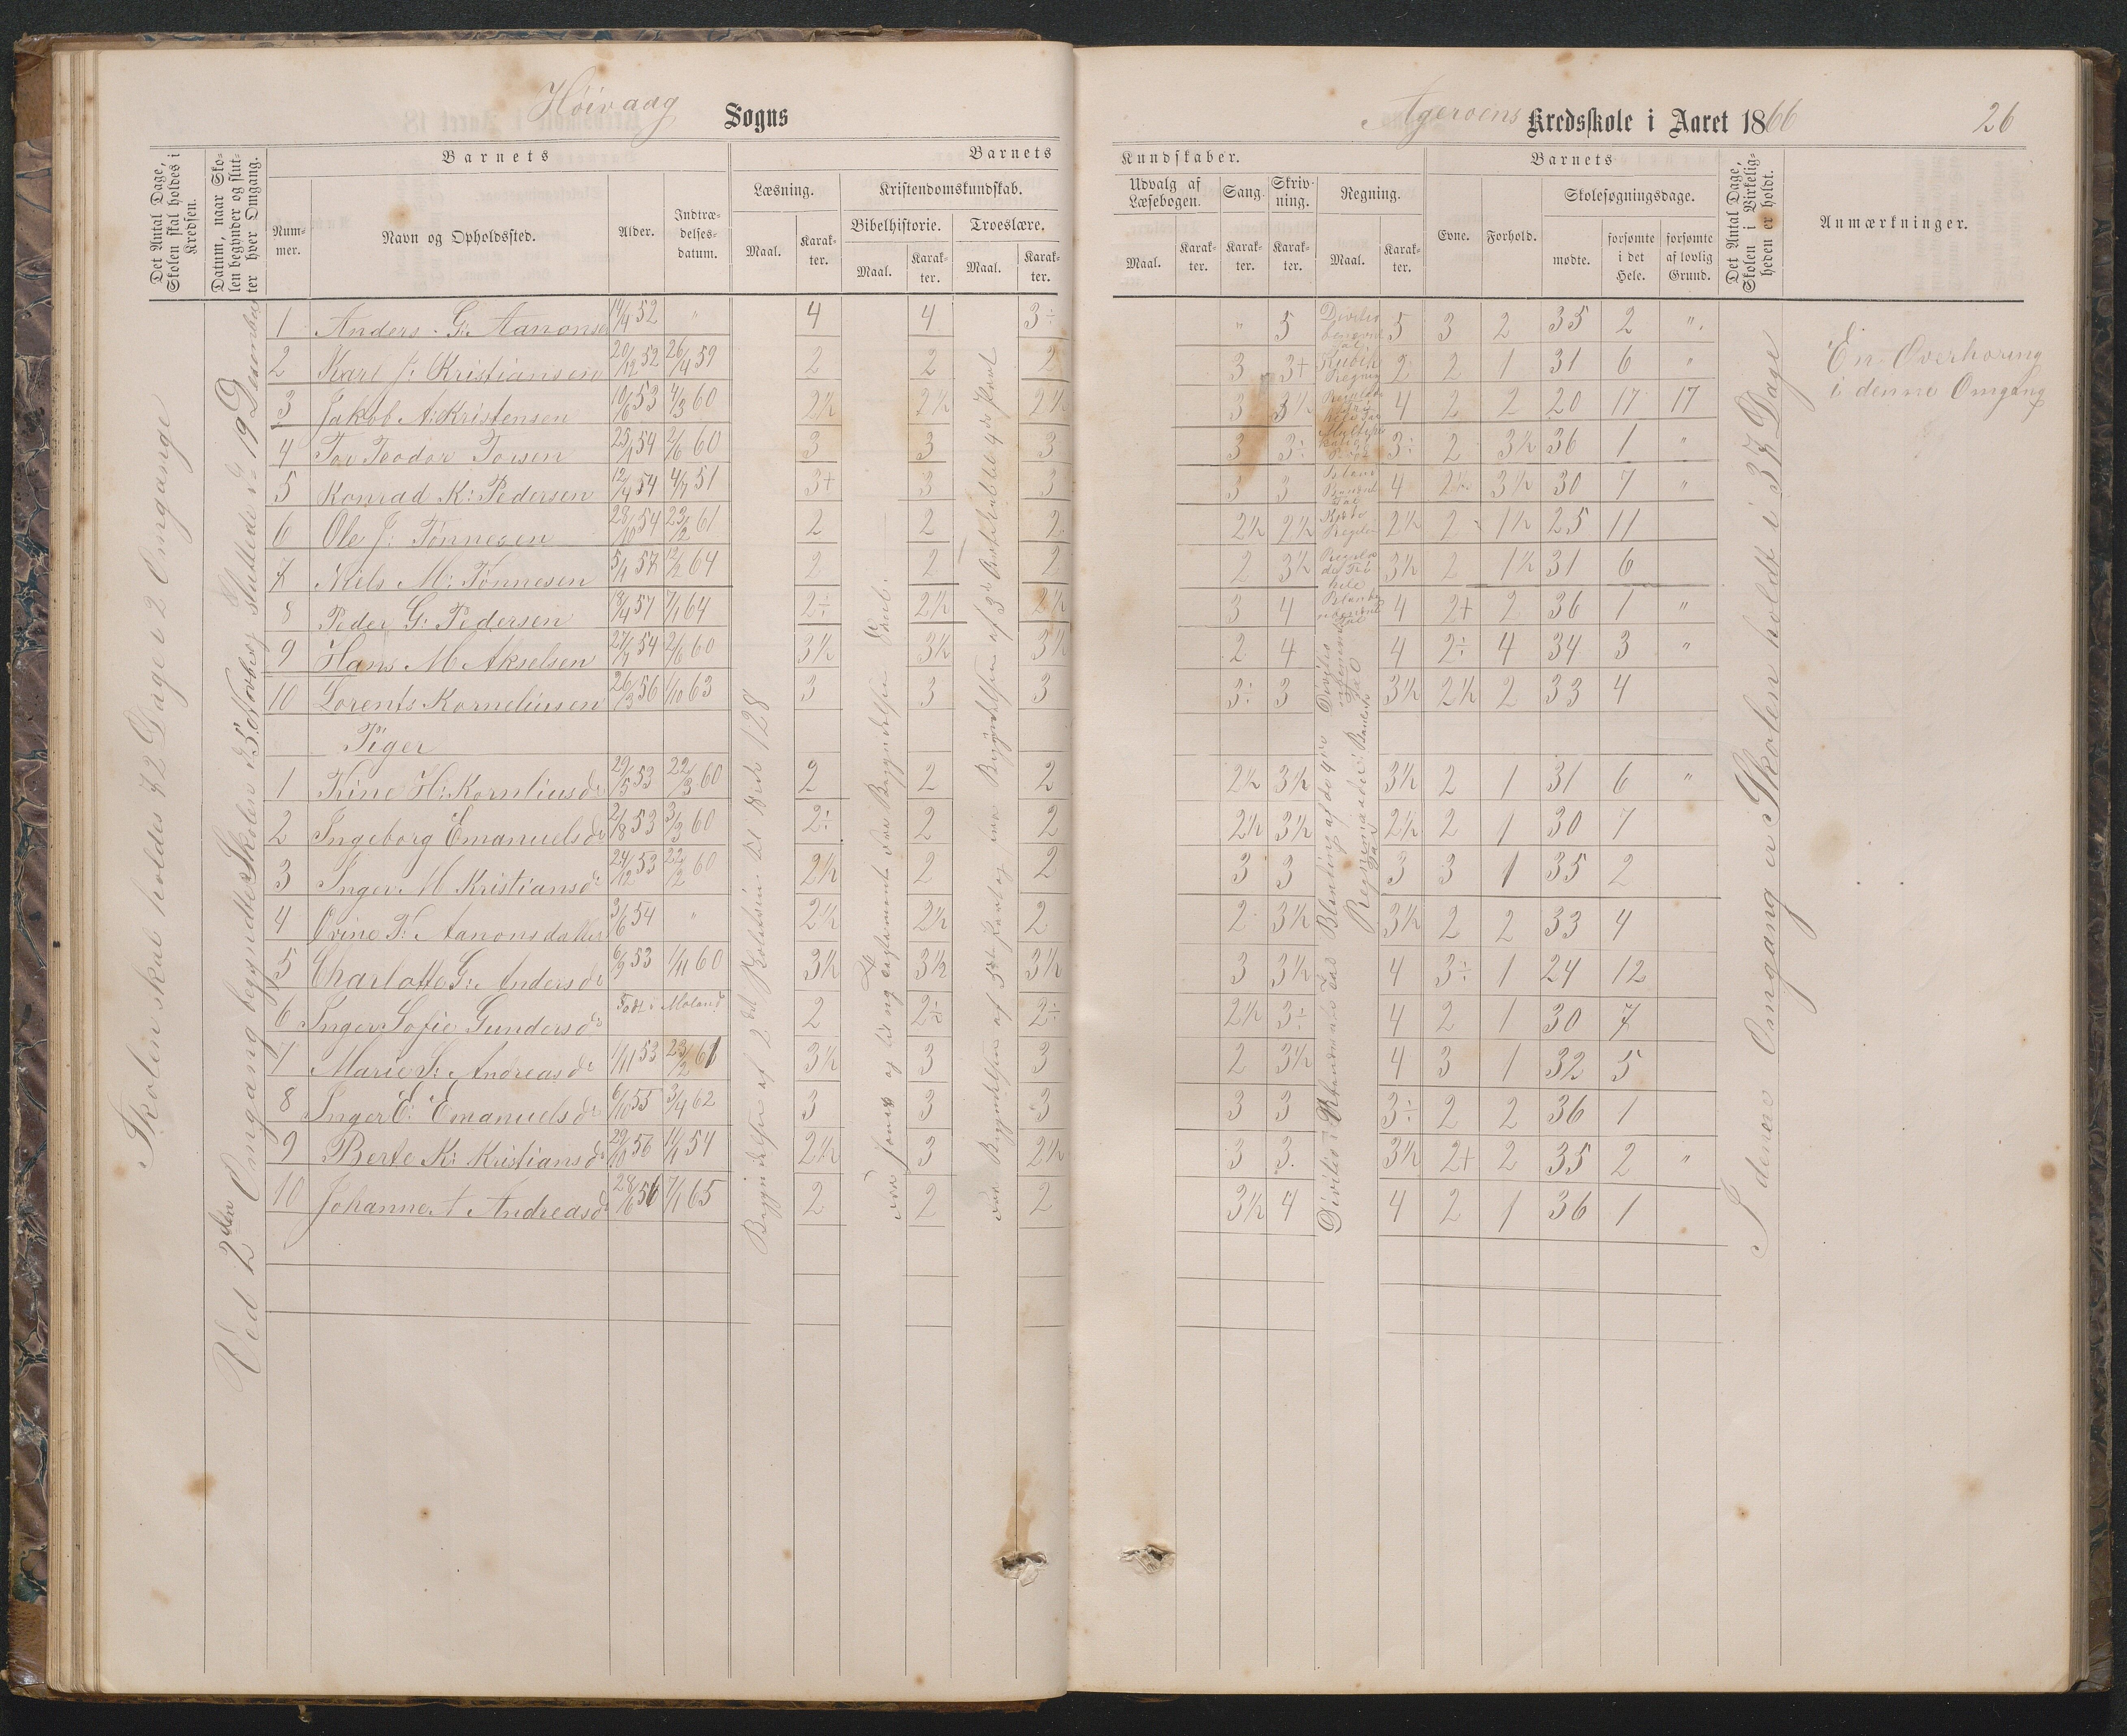 Höivaag Sogns
Ageröens Kredsskole i Aaret 1866 26
Det Antal Dage, Skolen skal holdes i Kredsen.
Datum, naar Skolen begynder og slutter hver Omgang.
Barnets
Nummer.
Navn og Opholdssted.
Alder.
Indtrædelsesdatum.
Barnets
Læsning.
Kristendomskundskab.
Maal.
Karakter.
Bibelhistorie.
Troeslære.
Maal.
Karakter.
Maal.
Karakter.
Kundskaber.
Udvalg af Læsebogen.
Sang.
Skrivning.
Regning.
Maal.
Karakter.
Karakter.
Karakter.
Maal.
Karakter.
Barnets
Evne.
Forhold.
Skolesøgningsdage.
mødte.
forsømte i det Hele.
forsømte af lovlig Grund.
Det Antal Dage, Skolen i Virkeligheden er holdt.
Anmærkninger.
Skolen skal holdes 72 Dage i 2 Omgange
Ved 2den Omgang begyndte Skolen d. 5 Novbr. og sluttede d. 19 Desember
1 Anders G. Aanonsen 14/4 52 " 4 4 3÷ " 5 5 3 2 35 2 "
2 Karl J: Kristiansen 20/12 52 26/4 59 2 2 2 3 3+ 2 2 1 31 6 "
3 Jakob A: Kristensen 10/6 53 4/3 60 2½ 2½ 2½ 3 3½ 4 2 2 20 17 17
4 Tov Teodor Tovsen 25/1 54 2/6 60 3 3 3 3 3÷ 3÷ 2 3½ 36 1 "
5 Konrad K: Pedersen 12/4 54 4/7 51 3+ 3 3 3 3 4 2½ 3½ 30 7 "
6 Ole J: Tønnesen 28/10 54 23/2 61 2 2 2 2½ 2½ 2½ 2 1½ 25 11
7 Niels M: Tønnesen 5/1 57 12/2 64 2 2 2 2 3½ 3½ 2 1½ 31 6
8 Peder G: Pedersen 18/4 57 7/1 64 2÷ 2½ 2½ 3 4 4 2+ 2 36 1 "
9 Hans M Akselsen 27/7 54 2/6 60 3½ 3½ 3½ 2 4 4 2÷ 4 34 3 "
10 Lorents Korneliusen 26/3 56 1/10 63 3 3 3 3÷ 3 3½ 2½ 2 33 4
Piger
1 Trine H: Kornliusdr 29/5 53 22/3 60 2 2 2 2½ 3½ 3½ 2 1 31 6 "
2 Ingeborg Emanuelsdr 2/8 53 3/3 60 2÷ 2 2 2½ 3½ 2½ 2 1 30 7
3 Inger M Kristiansdr 24/12 53 22/2 60 2½ 2 2 3 3 3 3 1 35 2
4 Ovine T: Aanonsdatter 3/6 54 " 2½ 2½ 2 2 3½ 3½ 2 2 33 4
5 Charlotte G: Andersdr 6/9 53 1/11 60 3½ 3½ 3½ 3 3½ 4 3÷ 1 24 12
6 Inger Sofie Gundersdr Født i Moland 2 2÷ 2÷ 2½ 3÷ 4 2 1 30 7
7 Marie S: Andreasdr 1/11 53 23/2 61 3½ 3 3 2 3½ 4 3 1 32 5
8 Inger E: Emanuelsdr 6/10 55 3/4 62 3 3 3 3 3 3÷ 2 2 36 1
9 Berte K: Kristiansdr 29/10 56 11/1 54 2½ 3 2½ 3 3. 3½ 2+ 2 35 2 "
10 Johanne A Andreasdr 28/6 56 7/1 65 2 2 2 3½ 4 4 2 1 36 1
I denne Omgang er Skolen holdt i 37 Dage
En Overhøring
i denne Omgang